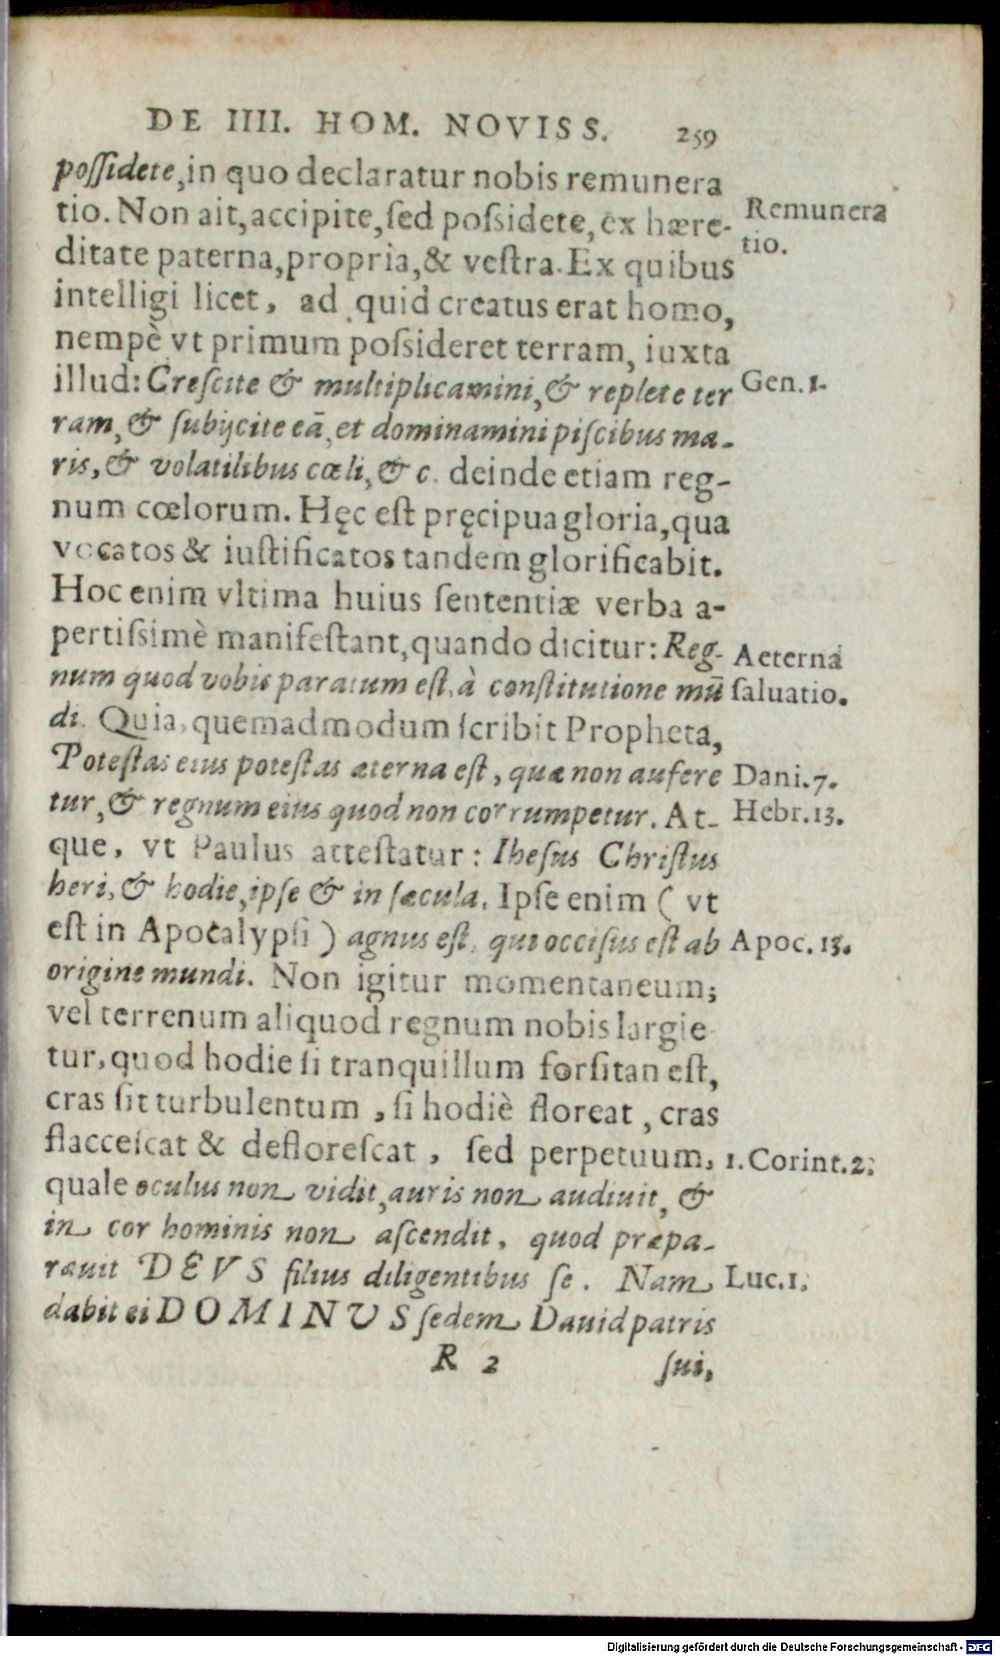 DE IIII. HOM. NOVISS. 259
poſſidete, in quo declaratur nobis remunera
tio. Non ait, accipite, ſed poſsidete, ex hære-
Remunera
tio.
ditate paterna, propria, & veſtra. Ex quibus
intelligi licet, ad quid creatus erat homo,
nempè vt primum poſsideret terram, iuxta
illud: Creſcite & multiplicamini, & replete ter
Gen. 1.
ram, & ſubijcite eā, et dominamini piſcibus ma-
ris, & volatilibus cœli, & c. deinde etiam reg-
num cœlorum. Hęc eſt pręcipua gloria, qua
vocatos & iuſtificatos tandem glorificabit.
Hoc enim vltima huius ſententiæ verba a-
pertiſsimè manifeſtant, quando dicitur: Reg-
Aeterna
num quod vobis paratum eſt, à conſtitutione mū
ſaluatio.
di. Quia, quemadmodum ſcribit Propheta,
Poteſtas eius poteſtas æterna eſt, quæ non aufere
Dani. 7.
tur, & regnum eius quod non corrumpetur. At-
Hebr. 13.
que, vt Paulus atteſtatur: Iheſus Chriſtus
heri, & hodie, ipſe & in ſæcula. Ipſe enim ( vt
eſt in Apocalypſi ) agnus eſt, qui occiſus eſt ab
Apoc. 13.
origine mundi. Non igitur momentaneum;
vel terrenum aliquod regnum nobis largie
tur, quod hodie ſi tranquillum forſitan eſt,
cras ſit turbulentum, ſi hodiè floreat, cras
flacceſcat & defloreſcat, ſed perpetuum,
1. Corint. 2.
quale oculus non vidit, auris non audiuit, &
in cor hominis non aſcendit, quod præpa-
rauit DEVS filius diligentibus ſe. Nam
Luc. 1.
dabit ei DOMINUS ſedem Dauid patris
R 2 ſui,
Digitalisierung gefördert durch die Deutsche Forschungsgemeinschaft - DFG